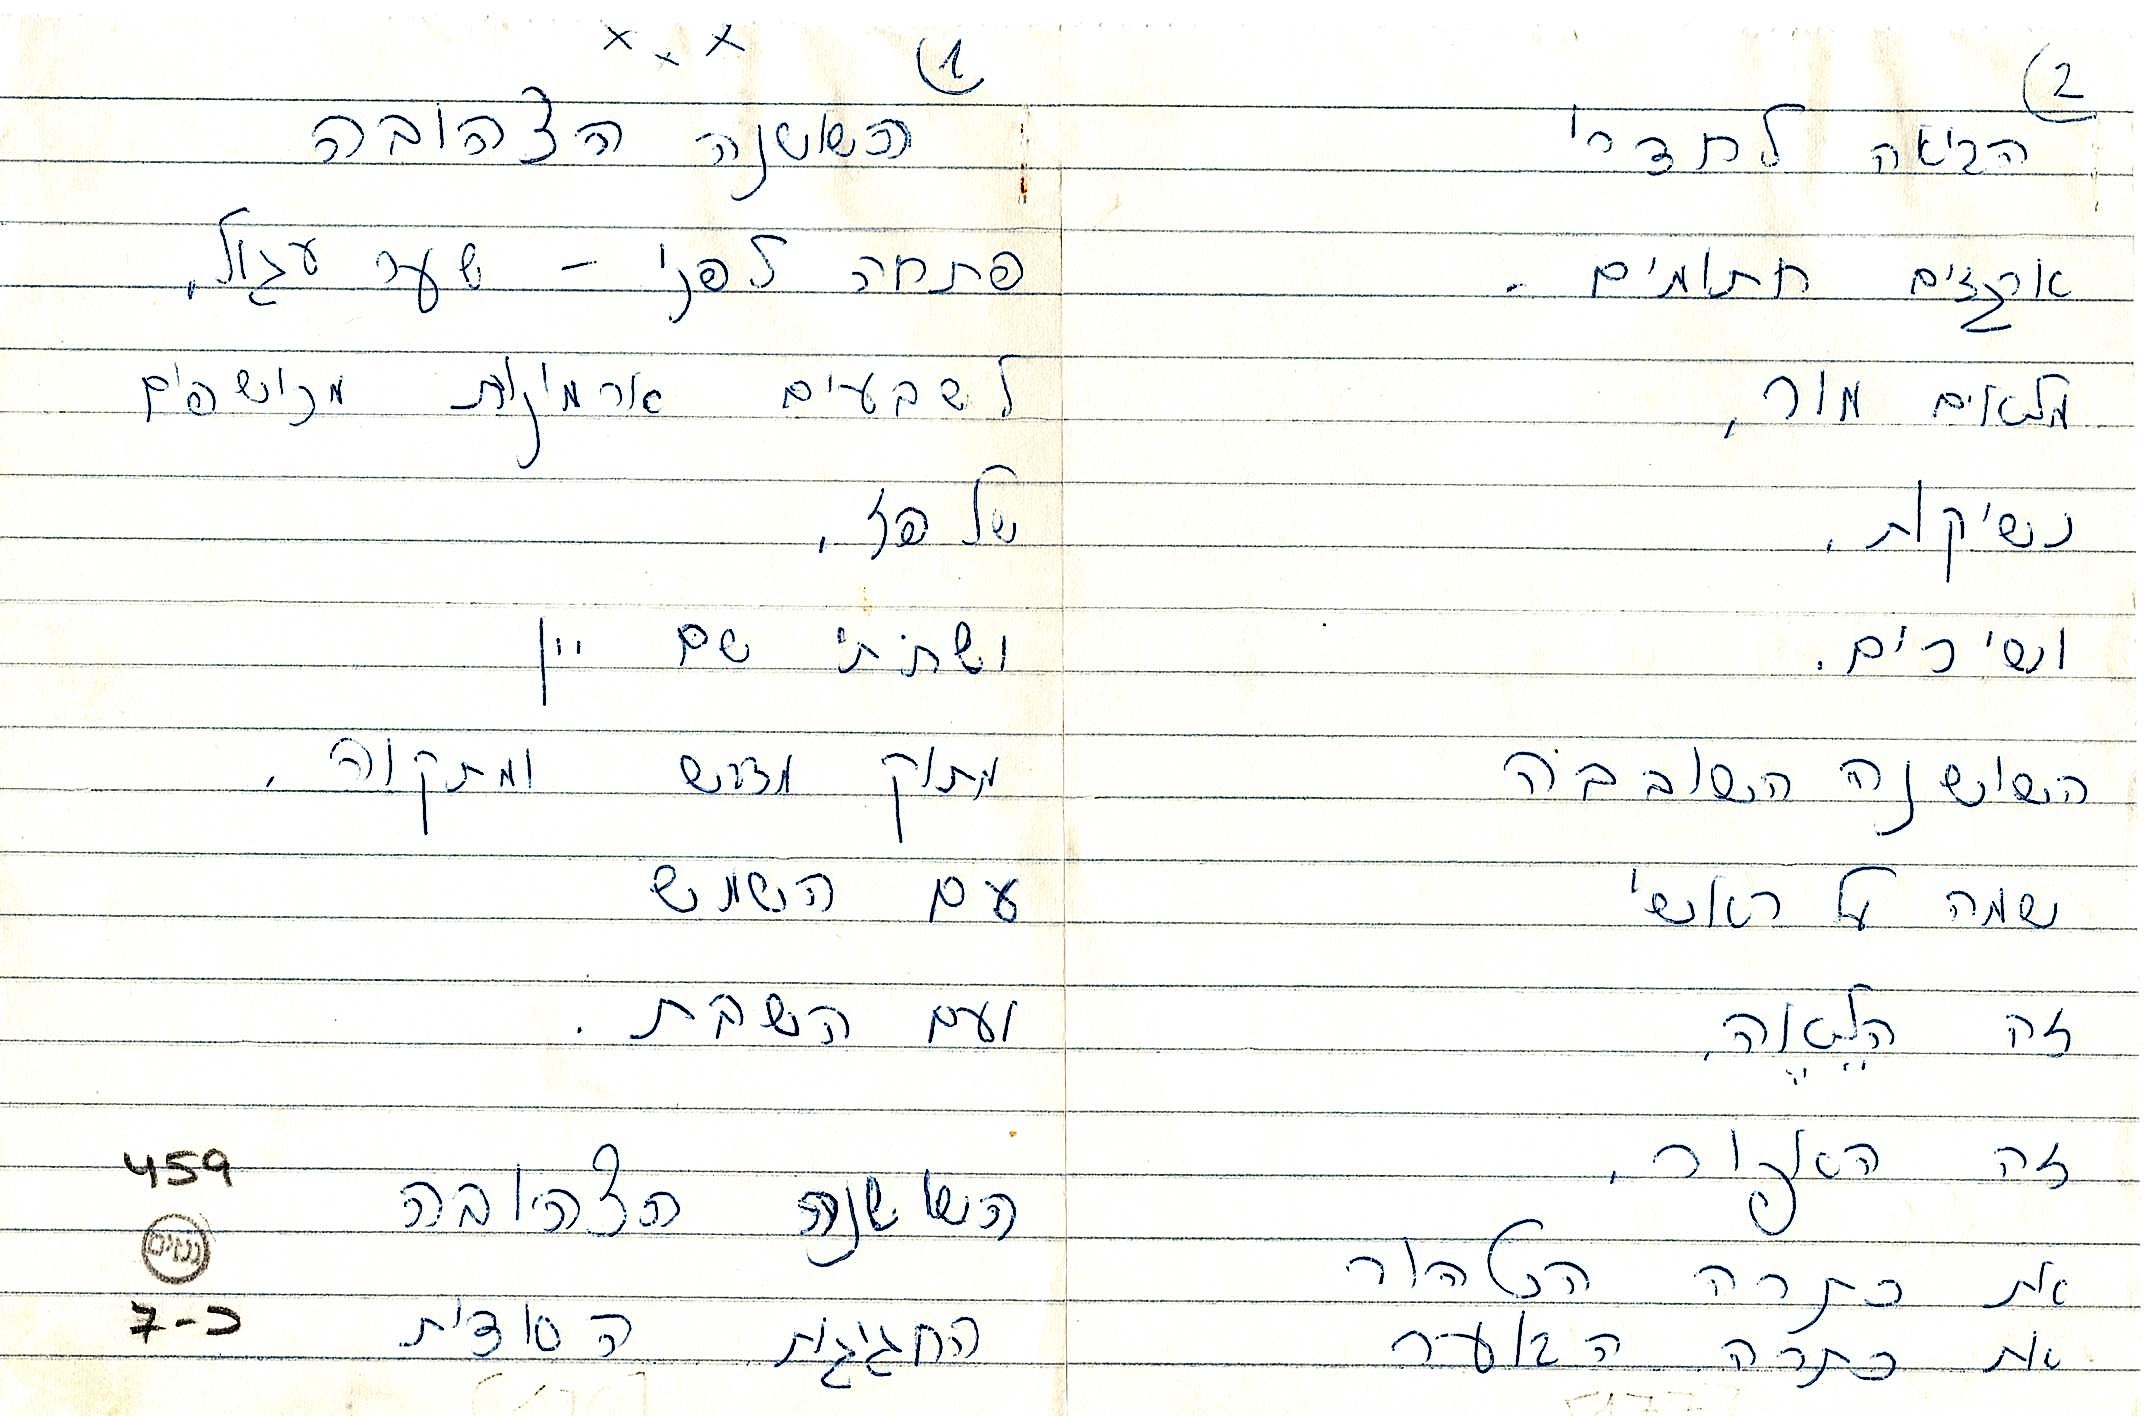 x x x
(1
השושנה הצהובה
פתחה לפני – שער עגול,
לשבעים ארמונות מכושפים
של פז,
ושתיתי שם יין
מתוק מדבש ומתקוה,
עם השמש
ועם השבת.
השושנה הצהובה
החגיגית הסודית
459
גנזים
כ-7
(2
הביאה לחדרי
ארגזים חתומים -
מלאים מור,
נשיקות,
ושירים.
השושנה השובבה
שמה על ראשי
זה הַלֵּאֶה,
זה האפור,
את כתרה הטהור
את כתרה הבוער